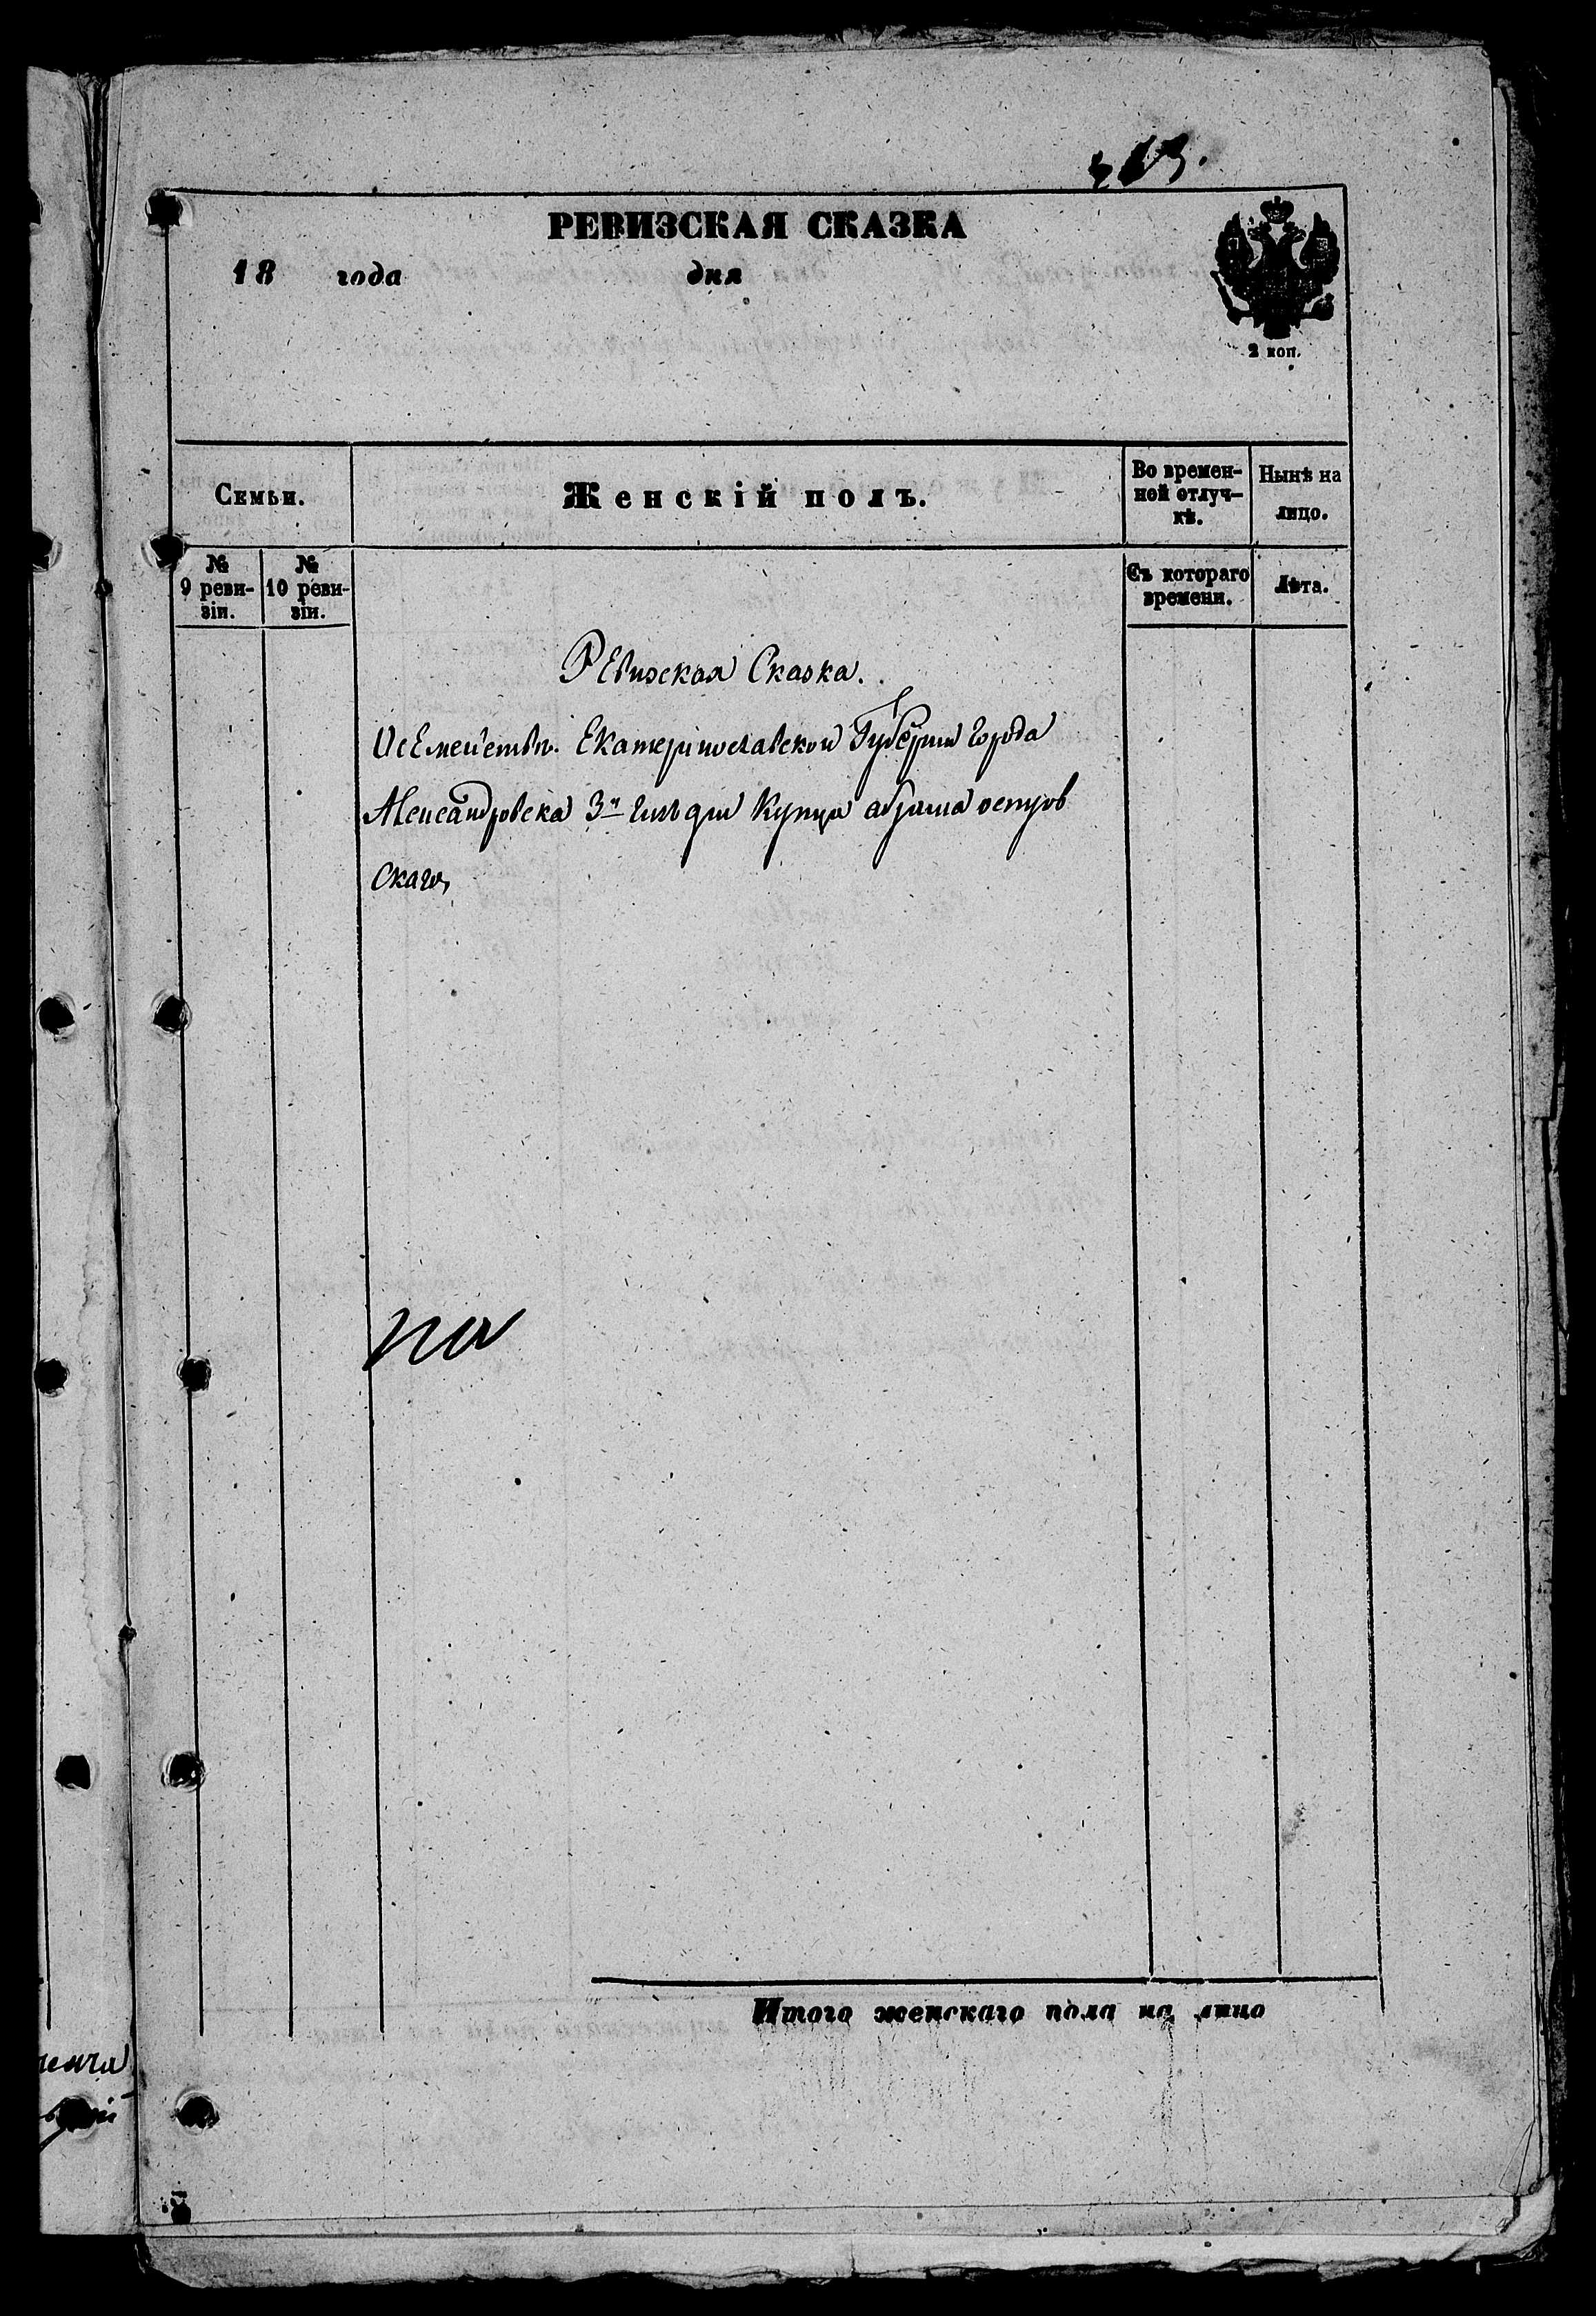 РЕВИЗСКАЯ СКАЗКА
18 года дня
2 коп.
Семьи.
Женскій полъ.
Во времен-
ной отлуч-
кѣ.
Нынѣ на
лицо.
№
9 реви-
зіи.
№
10 реви-
зіи.
Съ котораго
времени.
Лѣта.
Ревизская Сказка.
Осемействѣ. Екатеринославской Губерніи Города
Александровска 3й гильдіи Купца абрама остров
скаго,
на
Итого женскаго пола на лицо